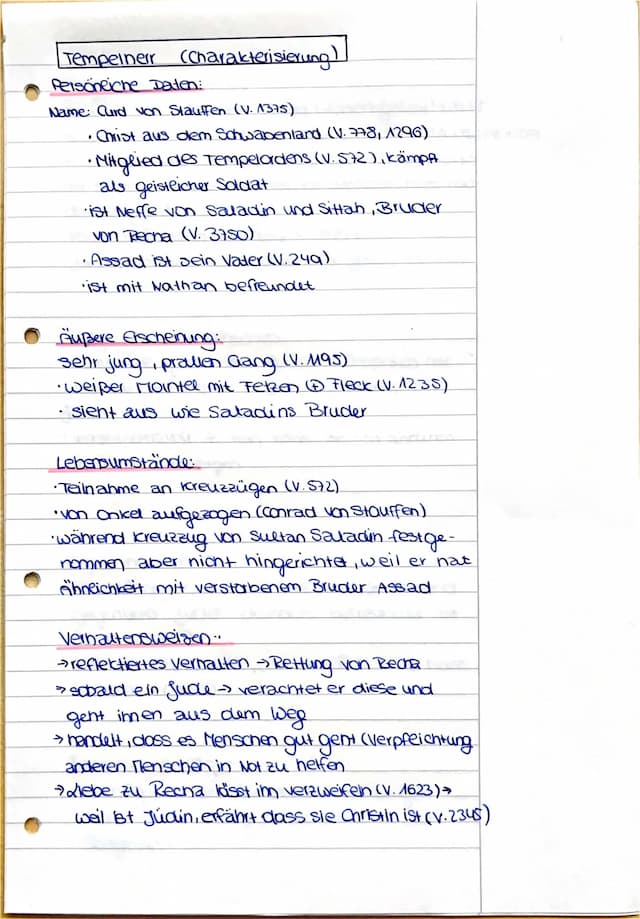 Tempelherr (Charakterisierung)
Persönliche Daten:
Name: Curd von Stauffen (V. 1375)
• Christ aus dem Schwabenland (V. 778, 1296)
• Mitglied des Tempelordens (V. 572), kämpft
als geistlicher Soldat
• ist Neffe von Saladin und Sittah, Bruder
von Recha (V. 3750)
• Assad ist sein Vater (V. 249)
• ist mit Nathan befreundet
Äußere Erscheinung:
sehr jung, prallen Gang (V. 1195)
• weißer Mantel mit Fetzen ⊕ Fleck (V. 1235)
• sieht aus wie Saladins Bruder
Lebensumstände:
• Teilnahme an Kreuzzügen (V. 572)
• von Onkel aufgezogen (Conrad von Stauffen)
• während Kreuzzug von Sultan Saladin festge-
nommen aber nicht hingerichtet, weil er hat
Ähnlichkeit mit verstorbenem Bruder Assad
Verhaltensweisen:
→ reflektiertes Verhalten → Rettung von Recha
→ sobald ein Jude → verachtet er diese und
geht ihnen aus dem Weg
→ handelt, dass es Menschen gut geht (Verpflichtung
anderen Menschen in Not zu helfen
→ Liebe zu Recha lässt ihn verzweifeln (V. 1623) →
weil ist Jüdin, erfährt dass sie Christin ist (V. 2345)